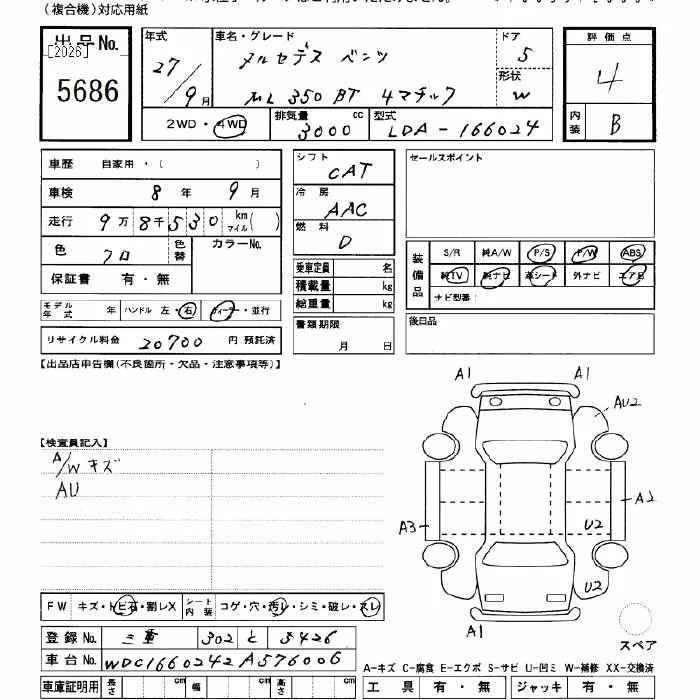 (複合機)対応用紙
出品No.
[2026]
5686
年式 27/9月
車名・グレード メルセデス ベンツ
ML 350 BT 4マチック
ドア 5
形状 W
2WD・4WD
排気量 3000 cc
型式 LDA-166024
評価点 4
内装 B
車歴 自家用・( )
車検 8年 9月
走行 9万8千530 km マイル( )
色 クロ 色替 カラーNo.
保証書 有・無
モデル年式 年 ハンドル 左・右 ディーラー・並行
リサイクル料金 20700 円 預託済
シフト CAT
冷房 AAC
燃料 D
乗車定員 名
積載量 kg
総重量 kg
書類期限 月 日
セールスポイント
装備品
S/R 純A/W P/S P/W ABS
純TV 純ナビ 革シート 外ナビ エアB
ナビ型番:
後日品
【出品店申告欄(不良箇所・欠品・注意事項等)】
【検査員記入】
A/W キズ
AU
A1 A1
AU2
A3
A2
U2
U2
A1
スペア
FW キズ・トビ石・割レX シート内装 コゲ・穴・汚レ・シミ・破レ・スレ
登録No. 三重 302 と 5426
車台No. WDC1660242A576006
車庫証明用 長さ cm 幅 cm 高さ cm
A-キズ C-腐食 E-エクボ S-サビ U-凹ミ W-補修 XX-交換済
工具 有・無 ジャッキ 有・無